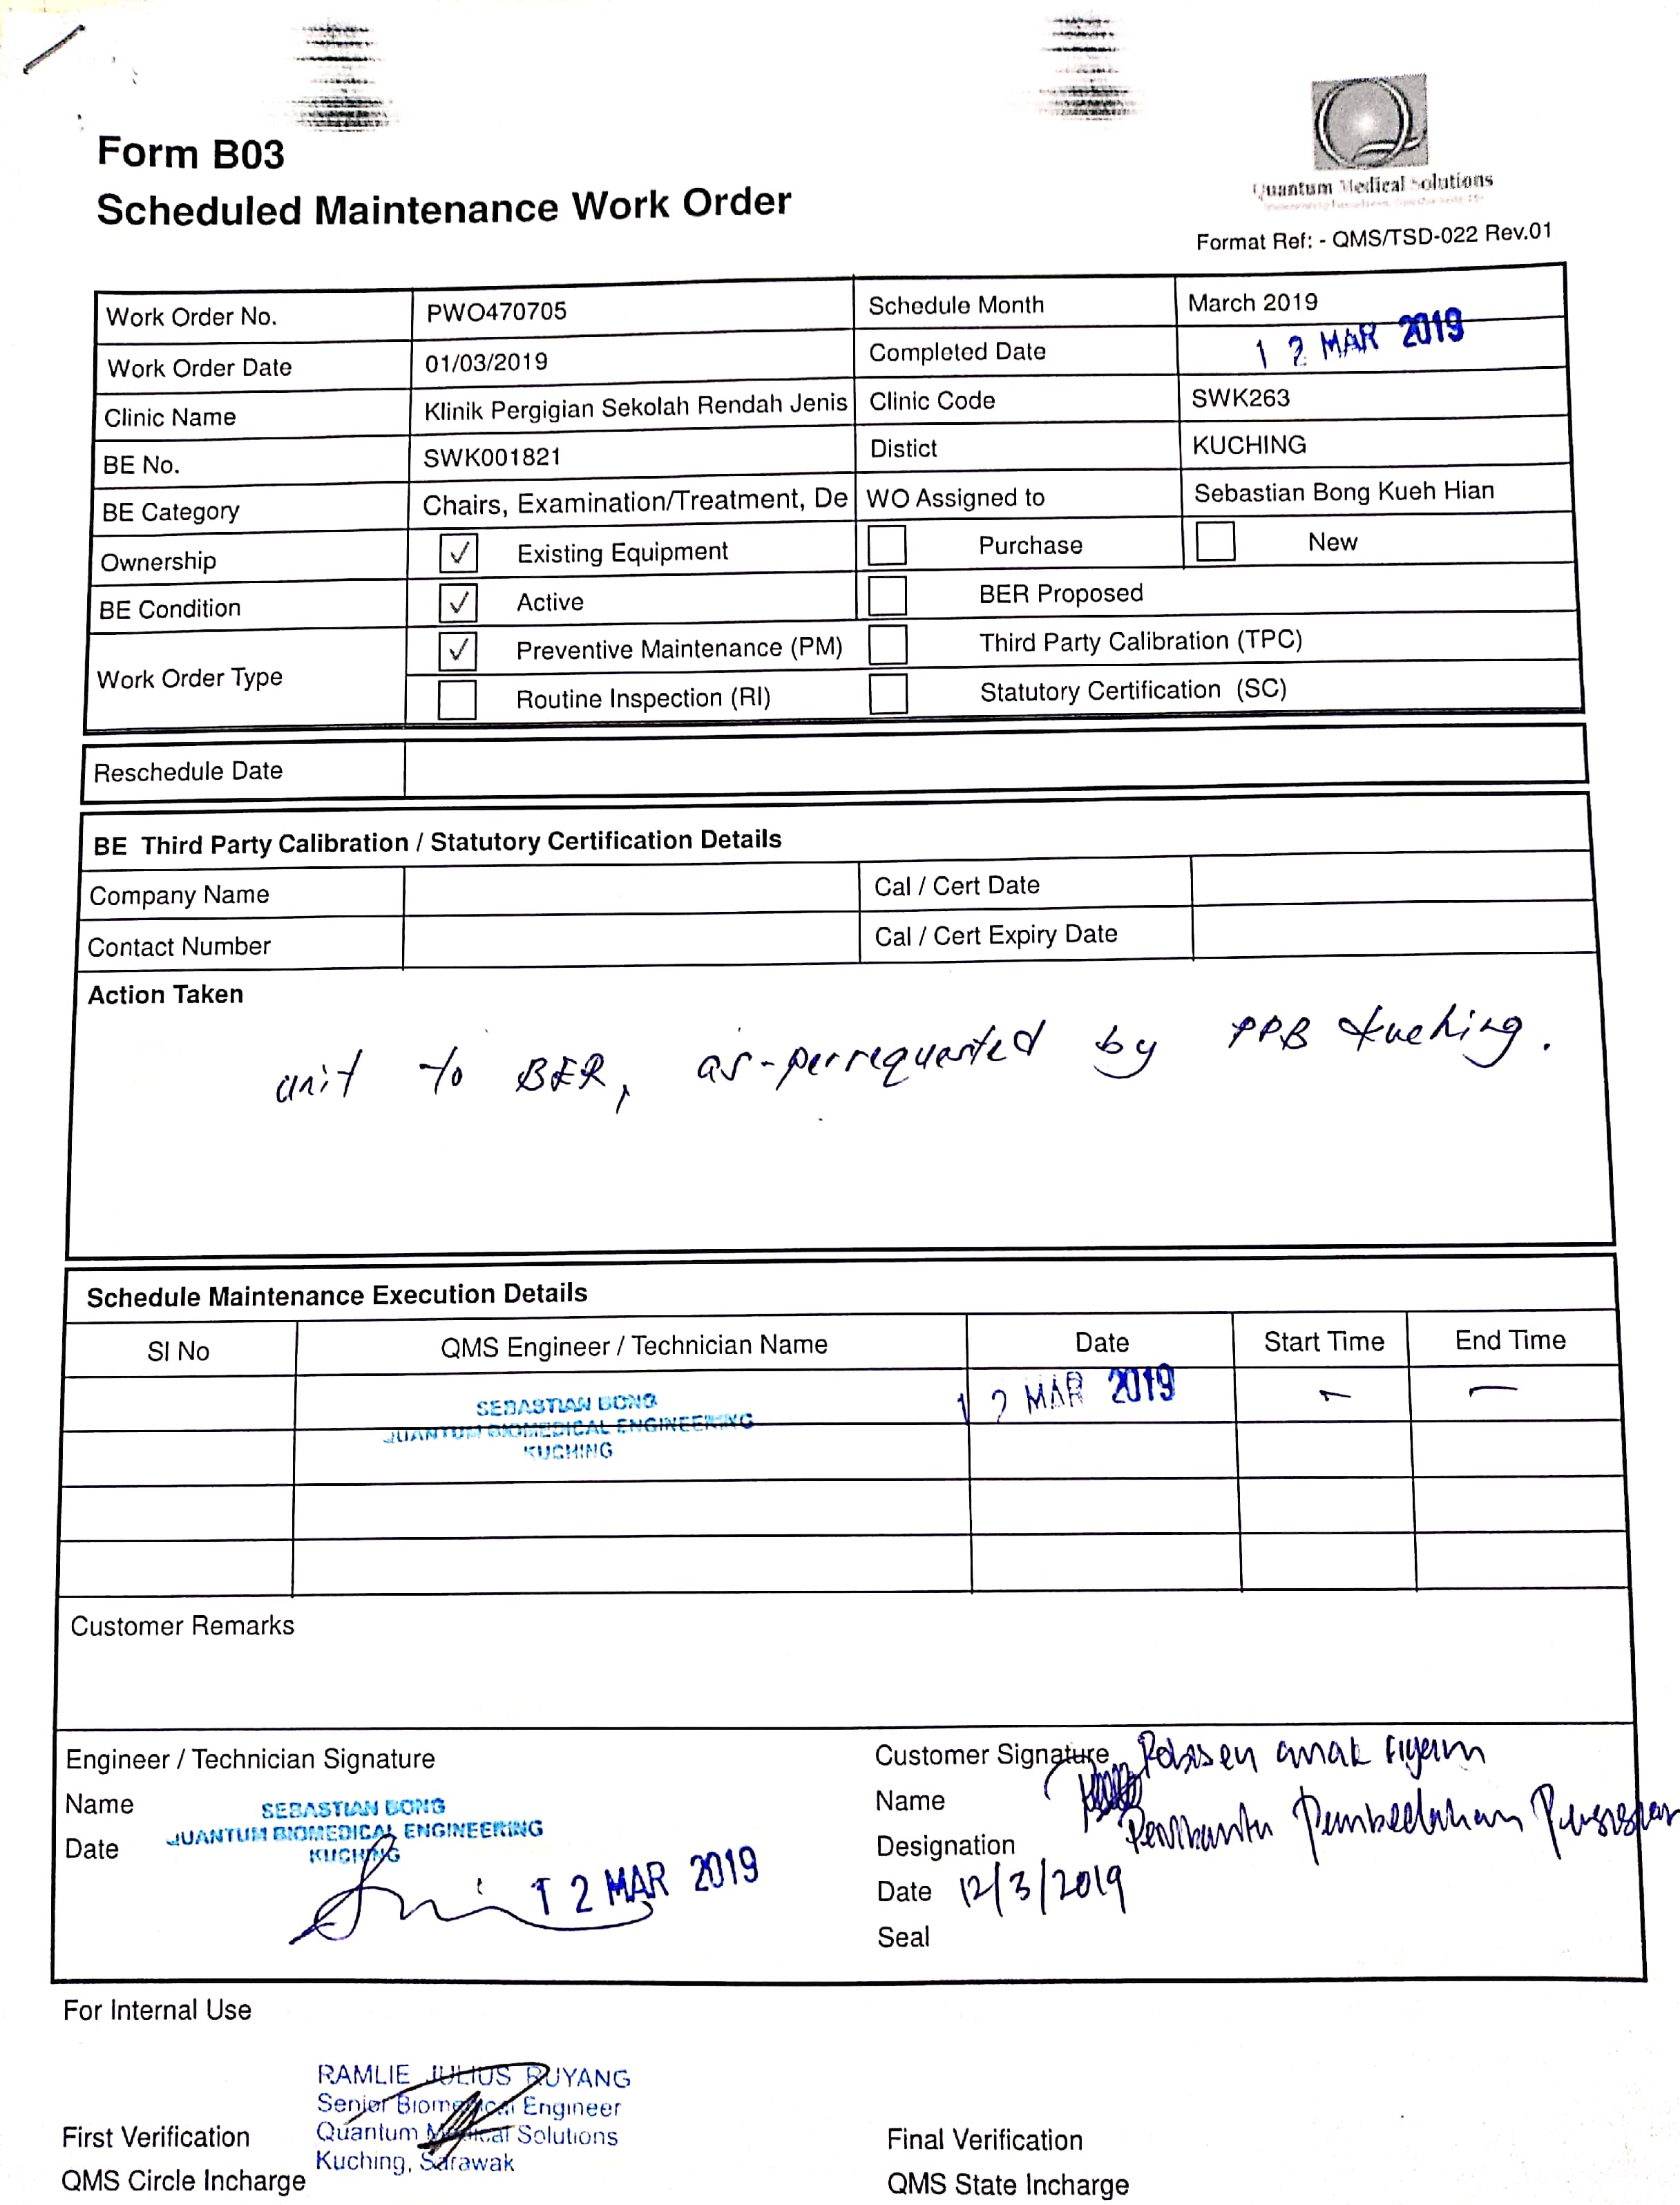 Form B03
Scheduled Maintenance Work Order
Quantum Medical Solutions
Format Ref: - QMS/TSD-022 Rev.01
Work Order No. PWO470705 Schedule Month March 2019
Work Order Date 01/03/2019 Completed Date 12 MAR 2019
Clinic Name Klinik Pergigian Sekolah Rendah Jenis Clinic Code SWK263
BE No. SWK001821 Distict KUCHING
BE Category Chairs, Examination/Treatment, De WO Assigned to Sebastian Bong Kueh Hian
Ownership ✓ Existing Equipment Purchase New
BE Condition ✓ Active BER Proposed
Work Order Type ✓ Preventive Maintenance (PM) Third Party Calibration (TPC)
Routine Inspection (RI) Statutory Certification (SC)
Reschedule Date
BE Third Party Calibration / Statutory Certification Details
Company Name Cal / Cert Date
Contact Number Cal / Cert Expiry Date
Action Taken
unit to BER, as-per requested by PPB Kuching.
Schedule Maintenance Execution Details
SI No QMS Engineer / Technician Name Date Start Time End Time
SEBASTIAN BONG 12 MAR 2019 - -
QUANTUM BIOMEDICAL ENGINEERING
KUCHING
Customer Remarks
Engineer / Technician Signature
Name SEBASTIAN BONG
QUANTUM BIOMEDICAL ENGINEERING
Date KUCHING
12 MAR 2019
Customer Signature anak
Name
Designation Pembantu Pembedahan Pergigian
Date 12/3/2019
Seal
For Internal Use
RAMLIE JULIUS RUYANG
Senior Biomedical Engineer
Quantum Medical Solutions
Kuching, Sarawak
First Verification
QMS Circle Incharge
Final Verification
QMS State Incharge